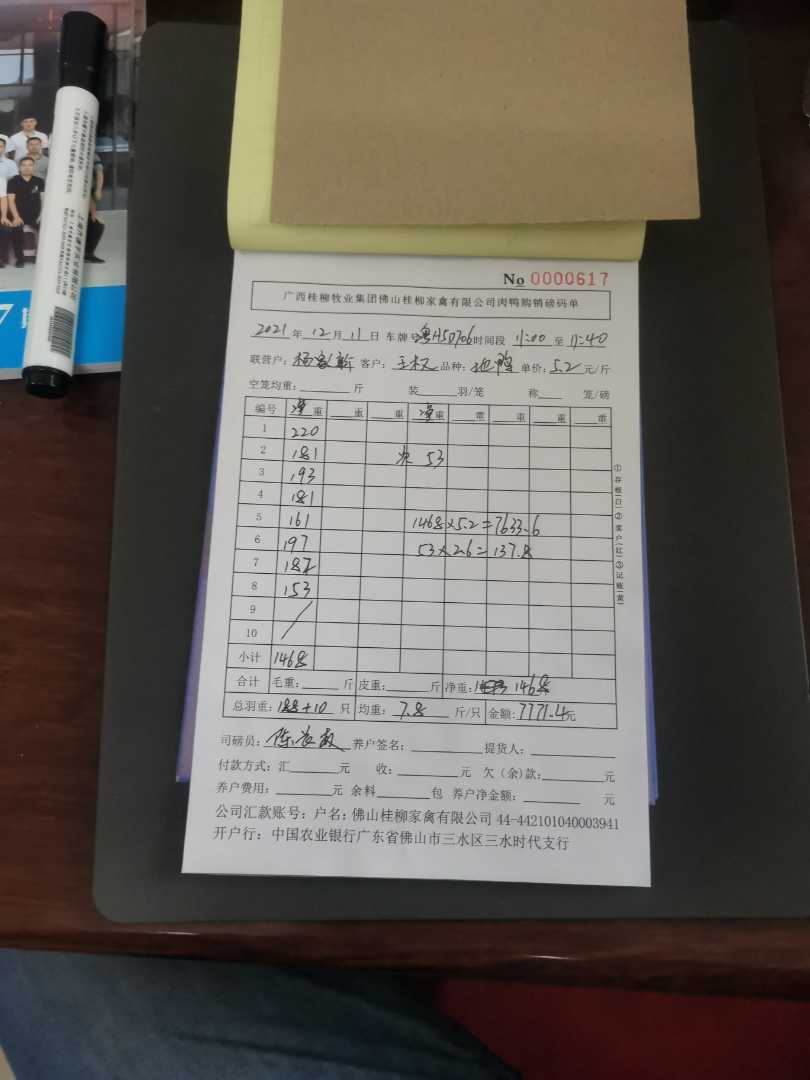 No 0000617
广西桂柳牧业集团佛山桂柳家禽有限公司肉鸭购销磅码单
2021年12月11日 车牌号粤H5D706时间段 11:00 至 11:40
联营户: 客户:王权 品种: 单价:5.2元/斤
空笼均重: 斤 装 羽/笼 称 笼/磅
编号 净重 重 重 净重 重 重 重 重
1 220
2 181 53
3 193
4 181
5 161 1468×5.2=7633.6
6 197 53×2.6=137.8
7 182
8 153
9
10
小计 1468
合计 毛重: 斤 皮重: 斤 净重: 1468
总羽重:188+10 只 均重: 7.8 斤/只 金额:7771.4元
司磅员: 养户签名: 提货人:
付款方式:汇 元 收: 元 欠(余)款: 元
养户费用: 元 余料 包 养户净金额: 元
公司汇款账号:户名:佛山桂柳家禽有限公司 44-442101040003941
开户行:中国农业银行广东省佛山市三水区三水时代支行
①存根(白)②客户(红)③记账(黄)